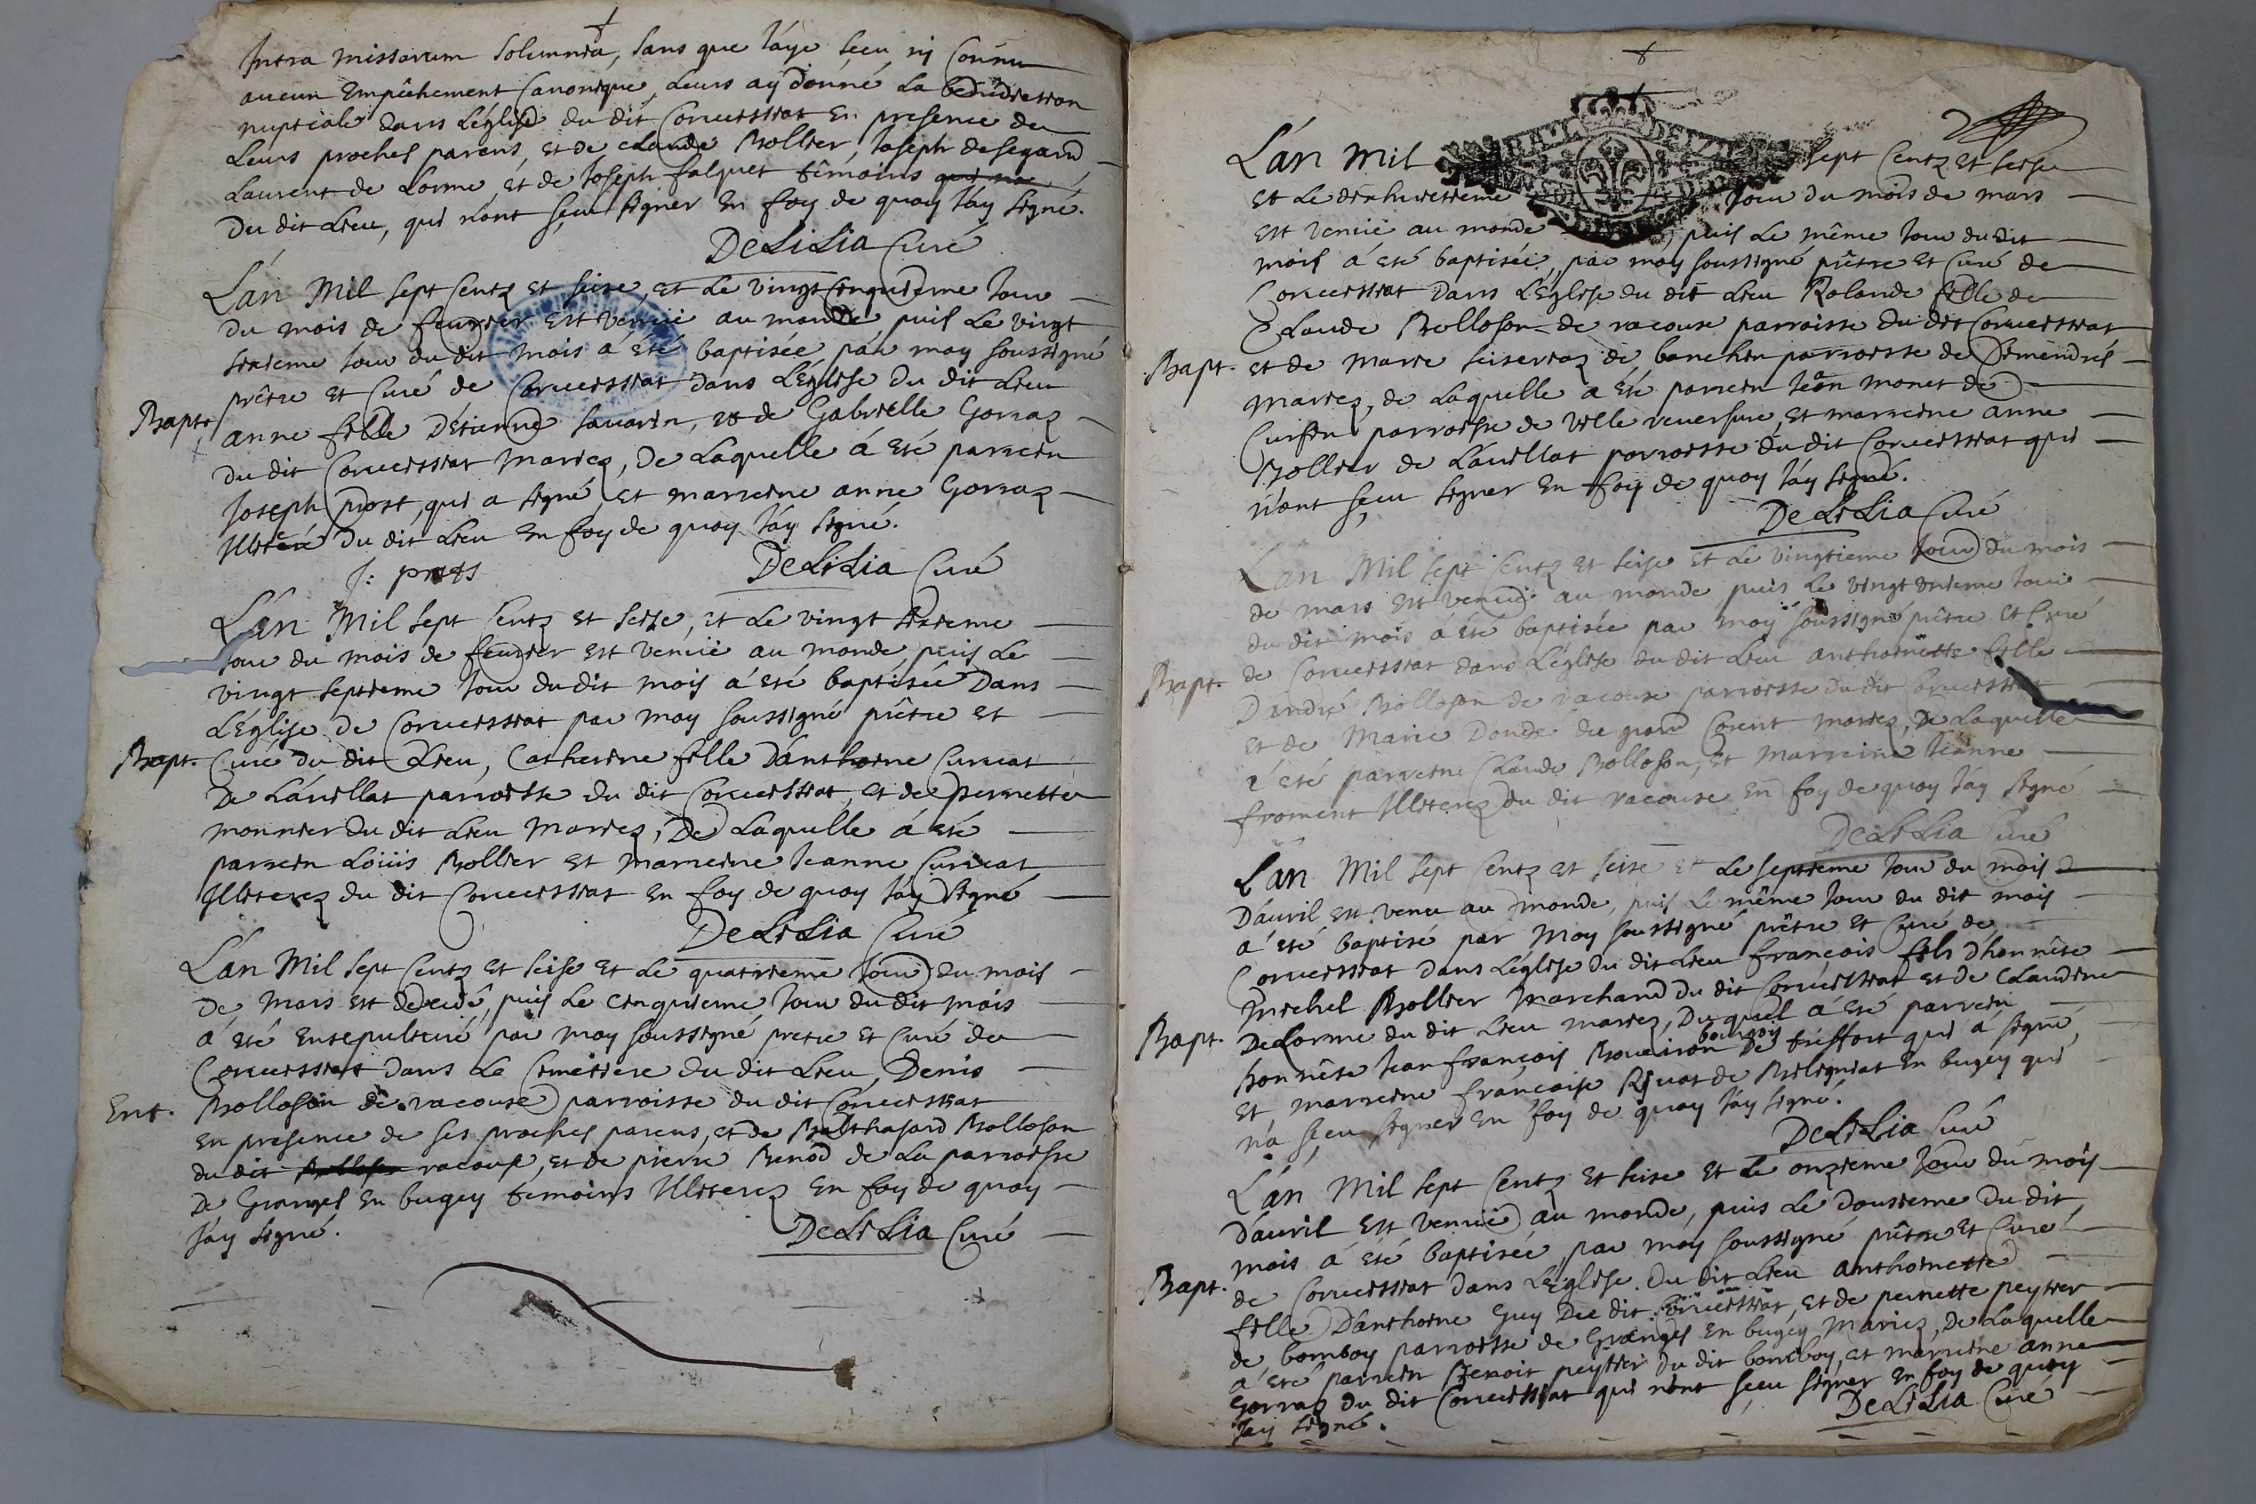 Intra missarum solemnia, sans que j'aye sçeu ny connu
aucun empêchement canonique, leurs ay donné la bénédiction
nuptiale dans l'église du dit Corveissiat en presence de
leurs proches parens, et de claude Bollier, Joseph desegaud
Laurent de Lorme, et de Joseph falquet têmoins
du dit Lieu, qui n'ont sçeu signer en foy de quoy j'áy signé.
DeLiLia Curé
L'án Mil sept Centz et seise, et Le vingt cinquieme Jour
du mois de fevrier est venuë au monde puis Le vingt
sixieme Jour du dit mois á été baptisée par moy soussigné
prêtre et Curé de Corveissiat dans L'église du dit Lieu
Bapt.
anne fille D'étienne savarin, et de Gabrielle Gorraz
du dit Corveissiat mariez, de Laquelle á été parrein
Joseph prost, qui a signé, et marreine anne Gorraz
Illiteré du dit Lieu en foy de quoy j'áy signé.
J: prost DeLiLia Curé
L'án Mil sept Centz et seize, et Le vingt sixieme
Jour du mois de fevrier est venuë au monde, puis Le
vingt septieme Jour du dit mois á été baptisée Dans
L'église de Corveissiat par moy soussigné prêtre et
Bapt.
Curé du dit Lieu, Catherine fille D'anthoine Curviat
De Lávellat parroisse du dit Corveissiat, et de pernette
monnier du dit Lieu mariez, De Laquelle á été
parrein Loüis Bollier et marreine Jeanne Curviat
Illiterez du dit Corveissiat en foy de quoy j'áy signé
DeLiLia Curé
L'án Mil sept Centz et seise et Le quatrieme Jour du mois
De Mars est decedé, puis Le cinquieme Jour du dit mois
á été ensepulturé par moy soussigné pretre et Curé de
Corveissiat dans Le Cimetiere du dit Lieu, Denis
Ent.
Bolloson de racouse parroisse du dit Corveissiat
en presence de ses proches parens, et de Balthasard Bolloson
du dit racouse, et de pierre Benod de La parroisse
De Granges en bugey temoins Illiterez en foy de quoy
J'áy signé.
DeLiLia Curé
L'án Mil sept Centz et seise
et Le dixhuitieme Jour du mois de mars
est venuë au monde, puis Le même Jour du dit
mois á été baptisée, par moy soussigné prêtre et Curé de
Corveissiat Dans L'Eglise du dit Lieu Rolande fille de
Claude Bolloson de racouse parroisse du dit Corveissiat
Bapt.
et de marie de banchin parroisse de
mariez, de Laquelle á été parrein Jean monet de
Cuisin parroisse de ville reversure, et marreine anne
Bollier de Lávellat parroisse du dit Corveissiat qui
n'ont sçeu signer en foy de quoy j'áy signé.
DeLiLia Curé
L'án Mil sept Centz et seise et Le vingtieme Jour du mois
de mars est venuë au monde, puis Le vingt unieme Jour
du dit mois á été baptisée par moy soussigné prêtre et Curé
Bapt.
de Corveissiat dans L'église du dit Lieu anthoinette fille
D'andré Bolloson de racouse parroisse du dit Corveissiat
et de Marie Dondé du grand Corent mariez, De Laquelle
á été parrein Claude Bolloson, et marreine Jeanne
froment Illiterez du dit racouse en foy de quoy j'áy signé
DeLiLia Curé
L'án Mil sept Centz et seise et Le septieme Jour du mois
D'ávril est venu au monde, puis Le même Jour du dit mois
á été baptisé par moy soussigné prêtre et Curé de
Corveissiat dans L'église du dit Lieu françois fils d'honnête
michel Bollier Marchand du dit Corveissiat et de Claudine
Bapt.
DeLorme du dit Lieu mariez, Du quel á été parrein
honnête Jean françois bourgois de treffort qui á signé,
et marreine françoise Rivat de en bugey qui
n'a sçeu signer en foy de quoy j'áy signé.
DeLiLia Curé
L'án Mil sept Centz et seise et Le onzieme Jour du mois
D'ávril est venuë au monde, puis Le dousieme du dit
mois á été baptisée par moy soussigné prêtre et Curé
Bapt.
de Corveissiat dans L'église du dit Lieu anthoinette
fille D'anthoine Guy Du dit Corveissiat, et de pernette peytier
de bomboy parroisse de Granges en bugey Mariez, De Laquelle
á été parrein Benoit peytier du dit bomboy, et marreine anne
Gorraz du dit Corveissiat qui n'ont sçeu signer en foy de quoy
J'áy signé.
DeLiLia Curé